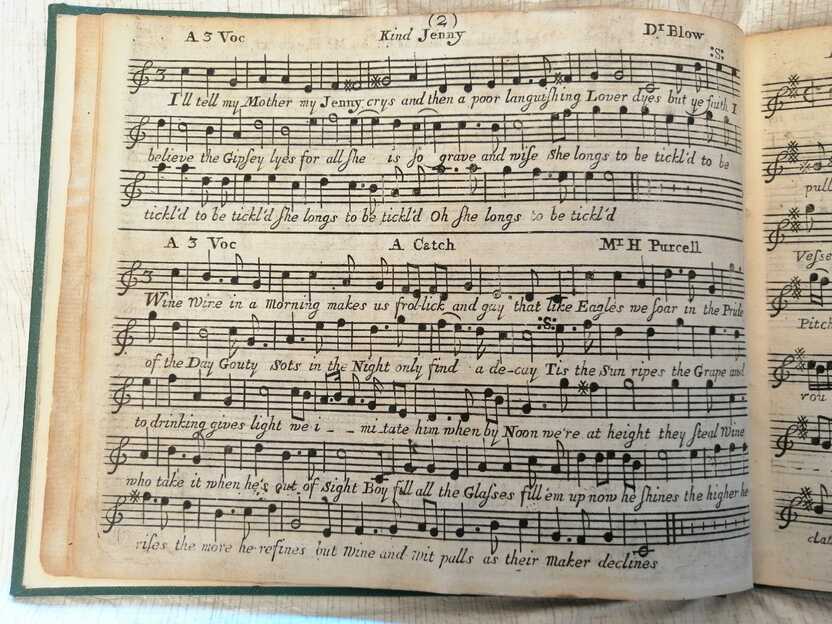 (2)
A 3 Voc Kind Jenny Dr Blow
:S:
I'll tell my Mother my Jenny crys and then a poor languiſhing Lover dyes but ye ſmith I
believe the Gipſey lyes for all ſhe is ſo grave and wiſe She longs to be tickl'd to be
tickl'd to be tickl'd ſhe longs to be tickl'd Oh ſhe longs to be tickl'd
A 3 Voc A Catch Mr H Purcell
3
Wine Wine in a Morning makes us frollick and gay that like Eagles we ſoar in the Pride
:S:
of the Day Gouty Sots in the Night only find a de-cay Tis the Sun ripes the Grape and
to drinking gives light we i - - mi tate him when by Noon we're at height they ſteal Wine
who take it when he's out of Sight Boy fill all the Glaſses fill em up now he ſhines the higher he
riſes the more he refines but Wine and wit palls as their Maker declines
pull
Veſse
Pitch
You
clat